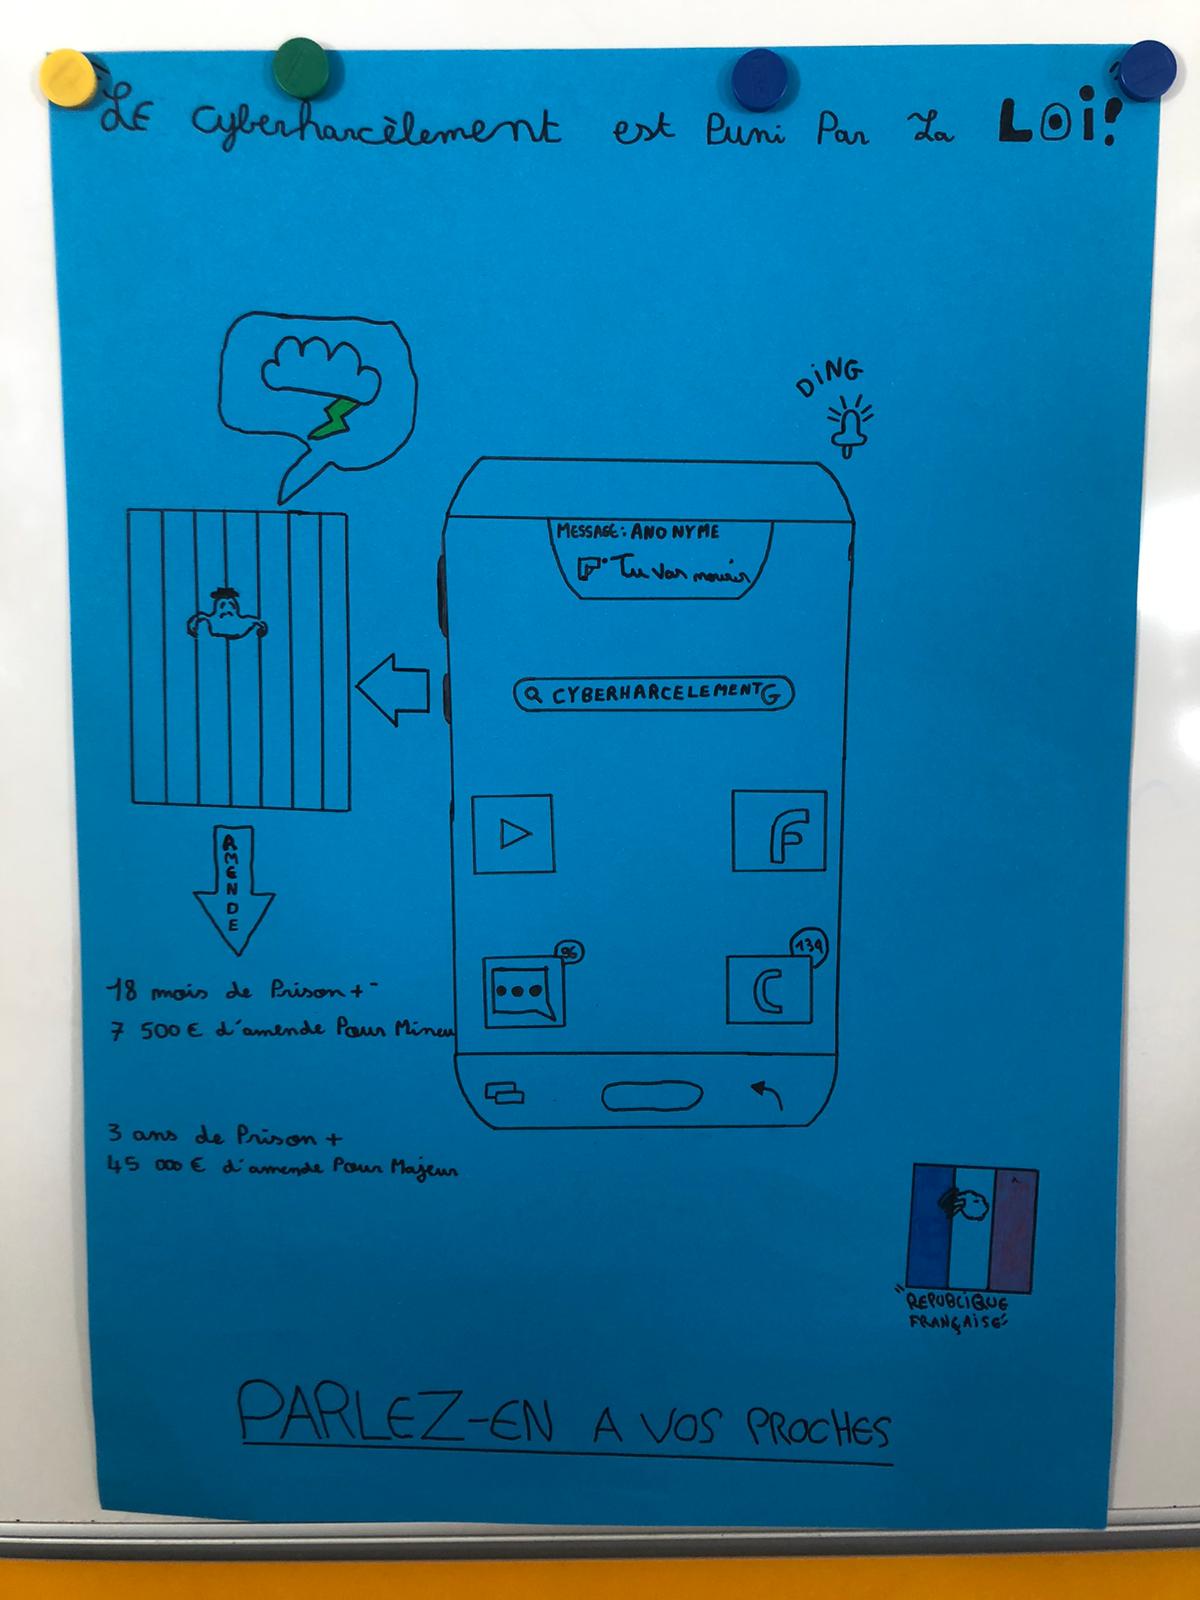 LE cyberharcèlement est Puni Par La LOi!
DiNG
MESSAGE: ANONYME
Tu vas mourir
CYBERHARCELEMENT G
F
96
134
C
AMENDE
18 mois de Prison +
7 500 € d'amende Pour Mineu
3 ans de Prison +
45 000 € d'amende Pour Majeur
"REPUBLIQUE
FRANÇAISE"
PARLEZ-EN A VOS PROCHES